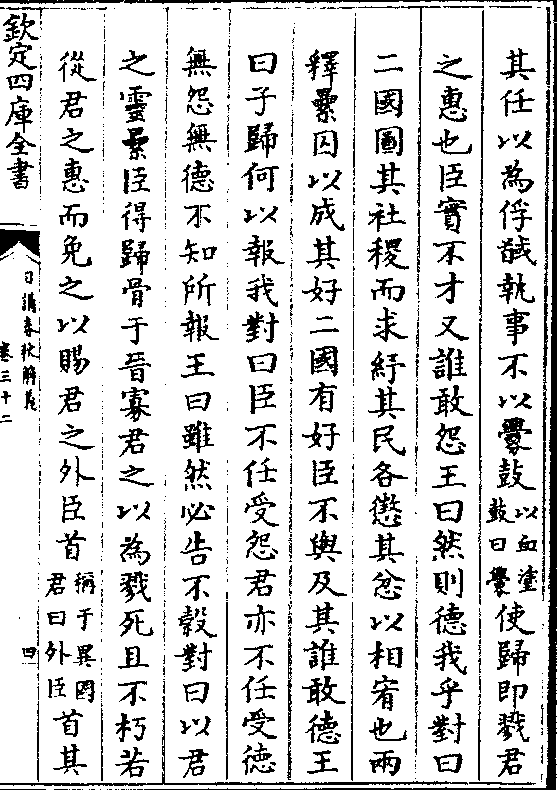 其任以為俘馘執事不以釁鼓以血塗鼓曰釁使歸即戮君
之惠也臣實不才又誰敢怨王曰然則德我乎對曰
二國圖其社稷而求紓其民各懲其忿以相宥也兩
釋纍囚以成其好二國有好臣不與及其誰敢德王
曰子歸何以報我對曰臣不任受怨君亦不任受德
無怨無德不知所報王曰雖然必告不榖對曰以君
之靈纍臣得歸骨于晉寡君之以為戮死且不朽若
從君之惠而免之以賜君之外臣首稱于異國君曰外臣首其
欽定四庫全書
日講春秋解義
卷三十二
四